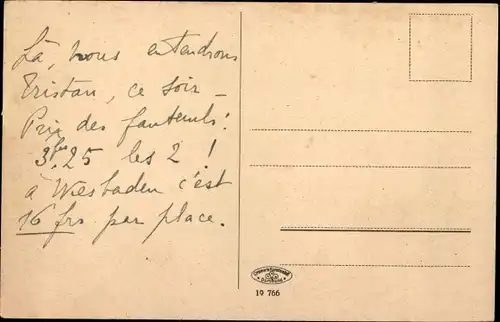 Là, nous entendrons
Tristan, ce soir –
Prix des fauteuils:
3frs25 les 2 !
à Wiesbaden c'est
16 frs par place.
19 766